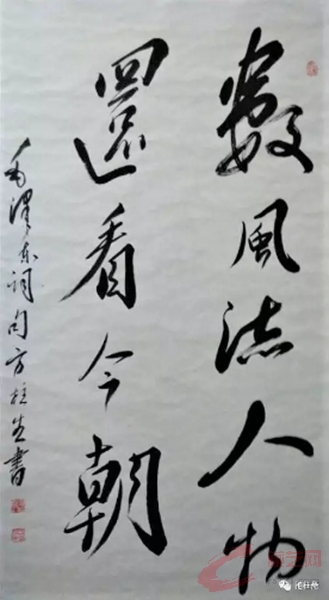 數風流人物
還看今朝
毛澤东词句方柱生書